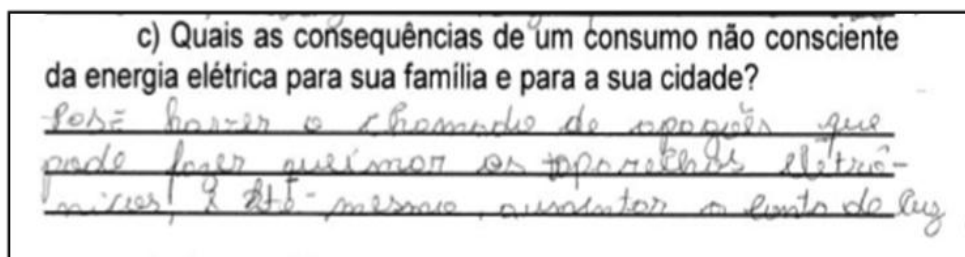 c) Quais as consequências de um consumo não consciente
da energia elétrica para sua família e para a sua cidade?
Pode haver o chamado de apagões que
pode fazer queimar os aparelhos eletrô-
nicos e até mesmo aumentar a conta de luz